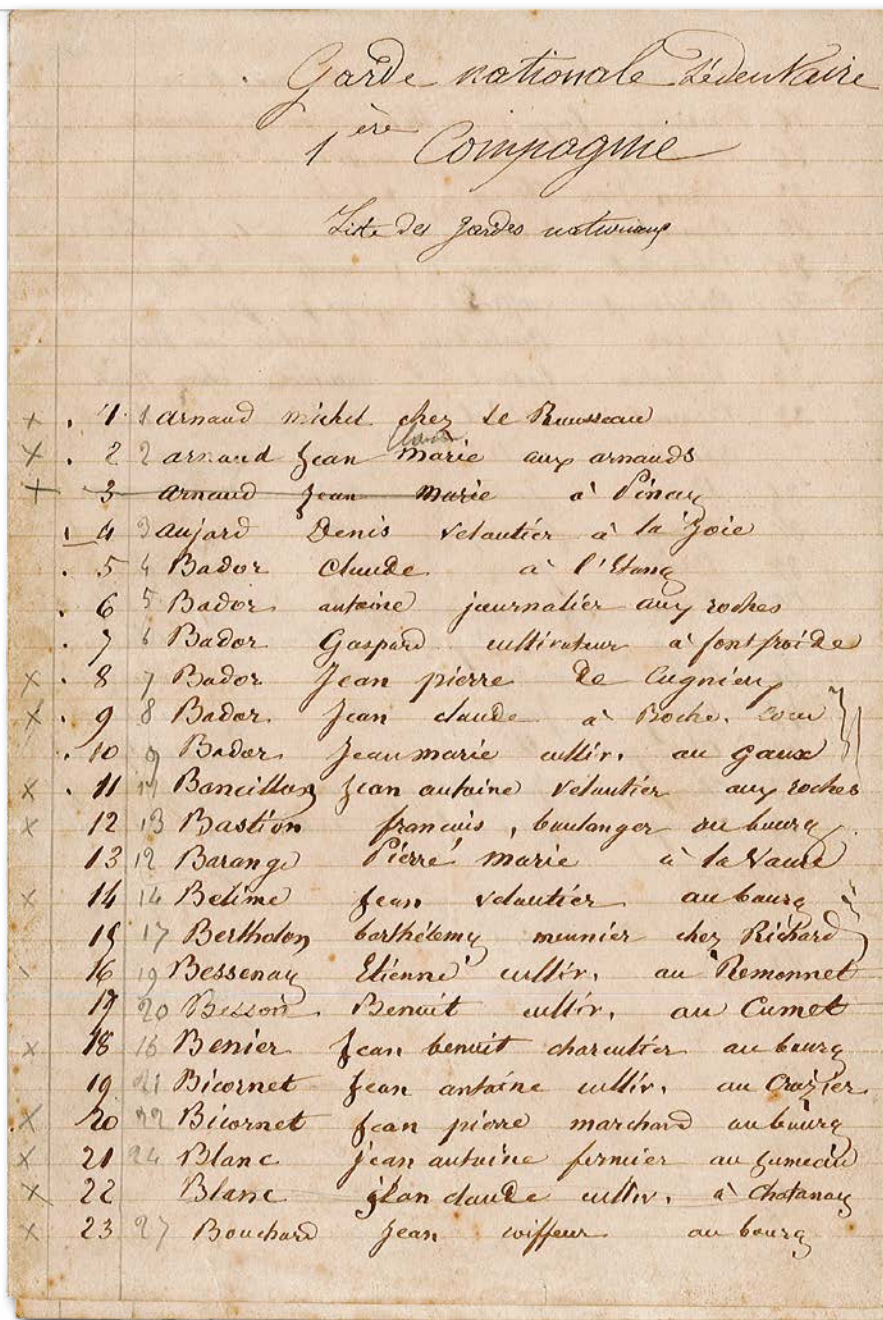 Garde nationale Sédentaire
1ère Compagnie
Liste des gardes nationaux
+ . 1 1 arnaud michel chez le Rousseau
X . 2 2 arnaud Jean marie aux arnauds
+ 3 arnaud Jean marie à Pinay
4 3 aujard Denis veloutier à la Joie
. 5 4 Bador Claude à l'Etang
. 6 5 Bador antoine journalier aux roches
. 7 6 Bador Gaspard cultivateur à fontfroide
X . 8 7 Bador Jean pierre de Cugnieu
X . 9 8 Bador Jean claude à Roche
. 10 9 Bador Jean marie cultiv. au Gaux
X . 11 Bancillon Jean antoine veloutier aux roches
X 12 13 Bastion francois, boulanger au bourg
13 12 Barange Pierre marie à la Vaure
X 14 14 Belime Jean veloutier au bourg
15 17 Bertholon barthélemy meunier chez Richard
16 19 Bessenay Etienne cultiv. au Remonnet
17 20 Besson Benoit cultiv. au Cumet
X 18 16 Benier Jean benoit charcutier au bourg
19 21 Bicornet Jean antoine cultiv. au Crozier
X 20 22 Bicornet Jean pierre marchard au bourg
X 21 24 Blanc jean antoine fermier au
X 22 Blanc jean claude cultiv. à Chatanay
X 23 27 Bouchard Jean coiffeur au bourg